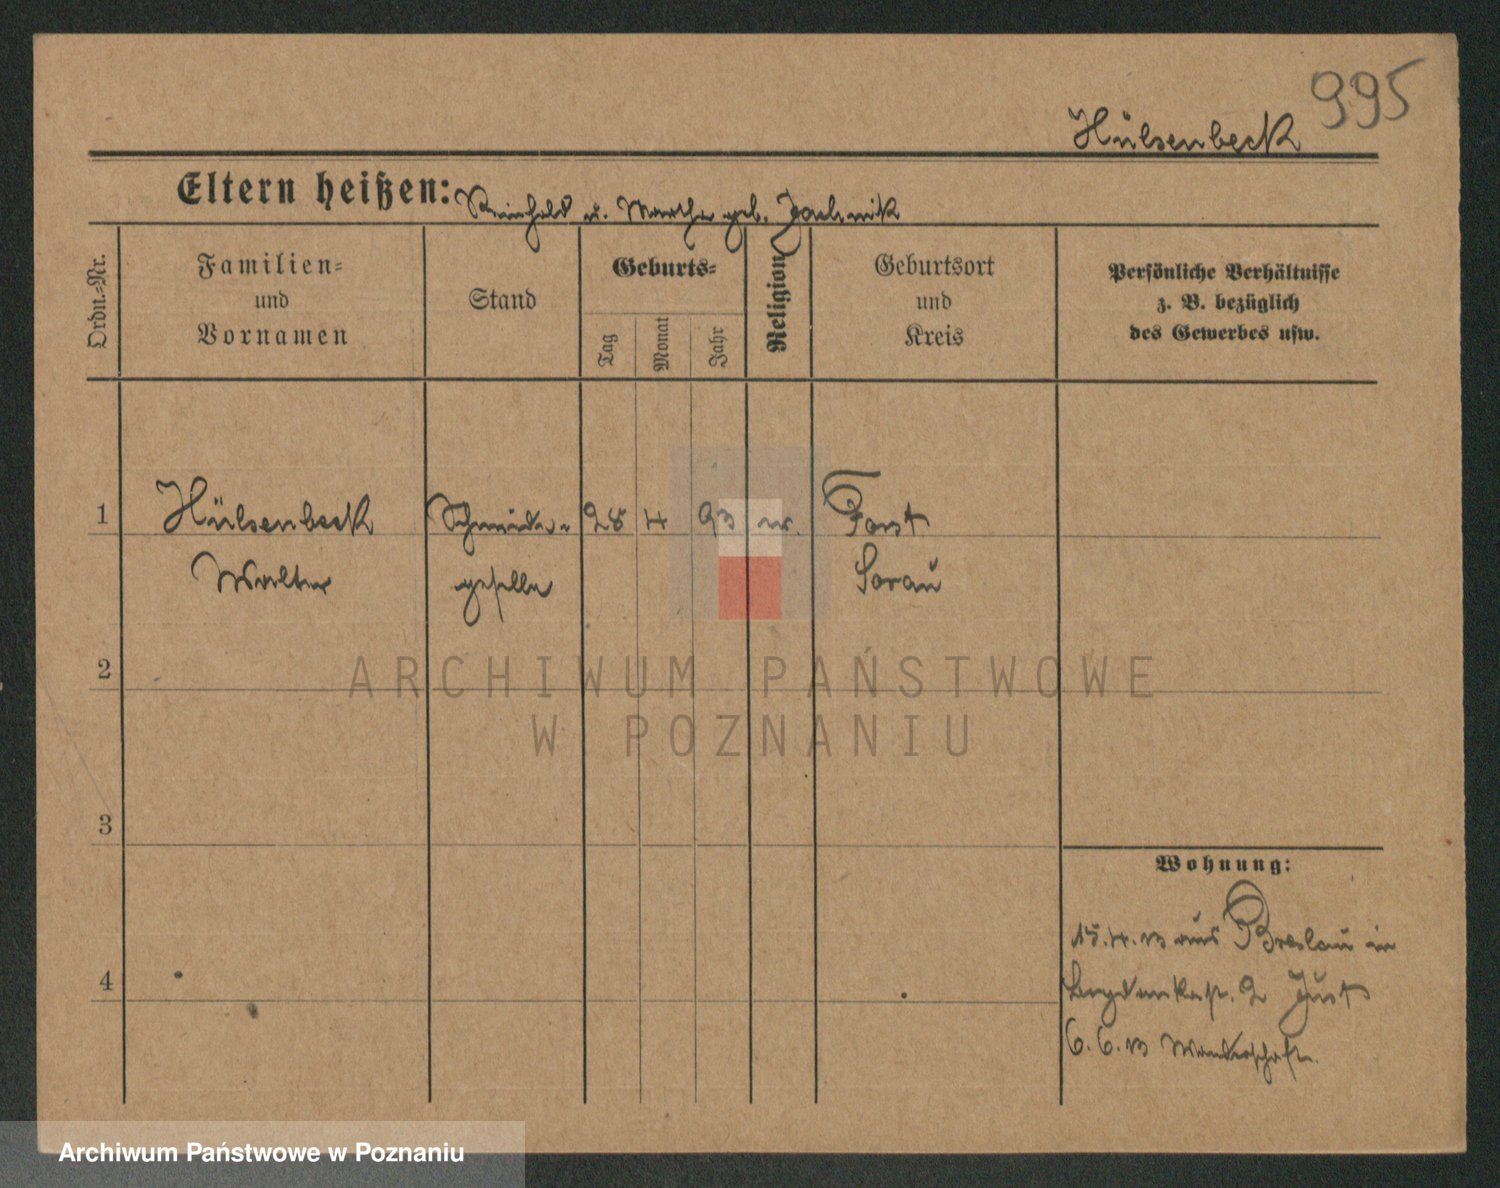 995
Hülsenbeck
Eltern heißen: Reinhold u. Martha geb. Jachnik
Ordn.-Nr.
Familien-
und
Vornamen
Stand
Geburts-
Tag
Monat
Jahr
Religion
Geburtsort
und
Kreis
Persönliche Verhältnisse
z. B. bezüglich
des Gewerbes usw.
1 Hülsenbeck Schmiede- 28 4 93 Forst
Walter geselle Sorau
2
ARCHIWUM PAŃSTWOWE
W POZNANIU
3
Wohnung:
15.4.13 aus Breslau in
2 Just
4
6.6.13 Wanderschaft.
Archiwum Państwowe w Poznaniu